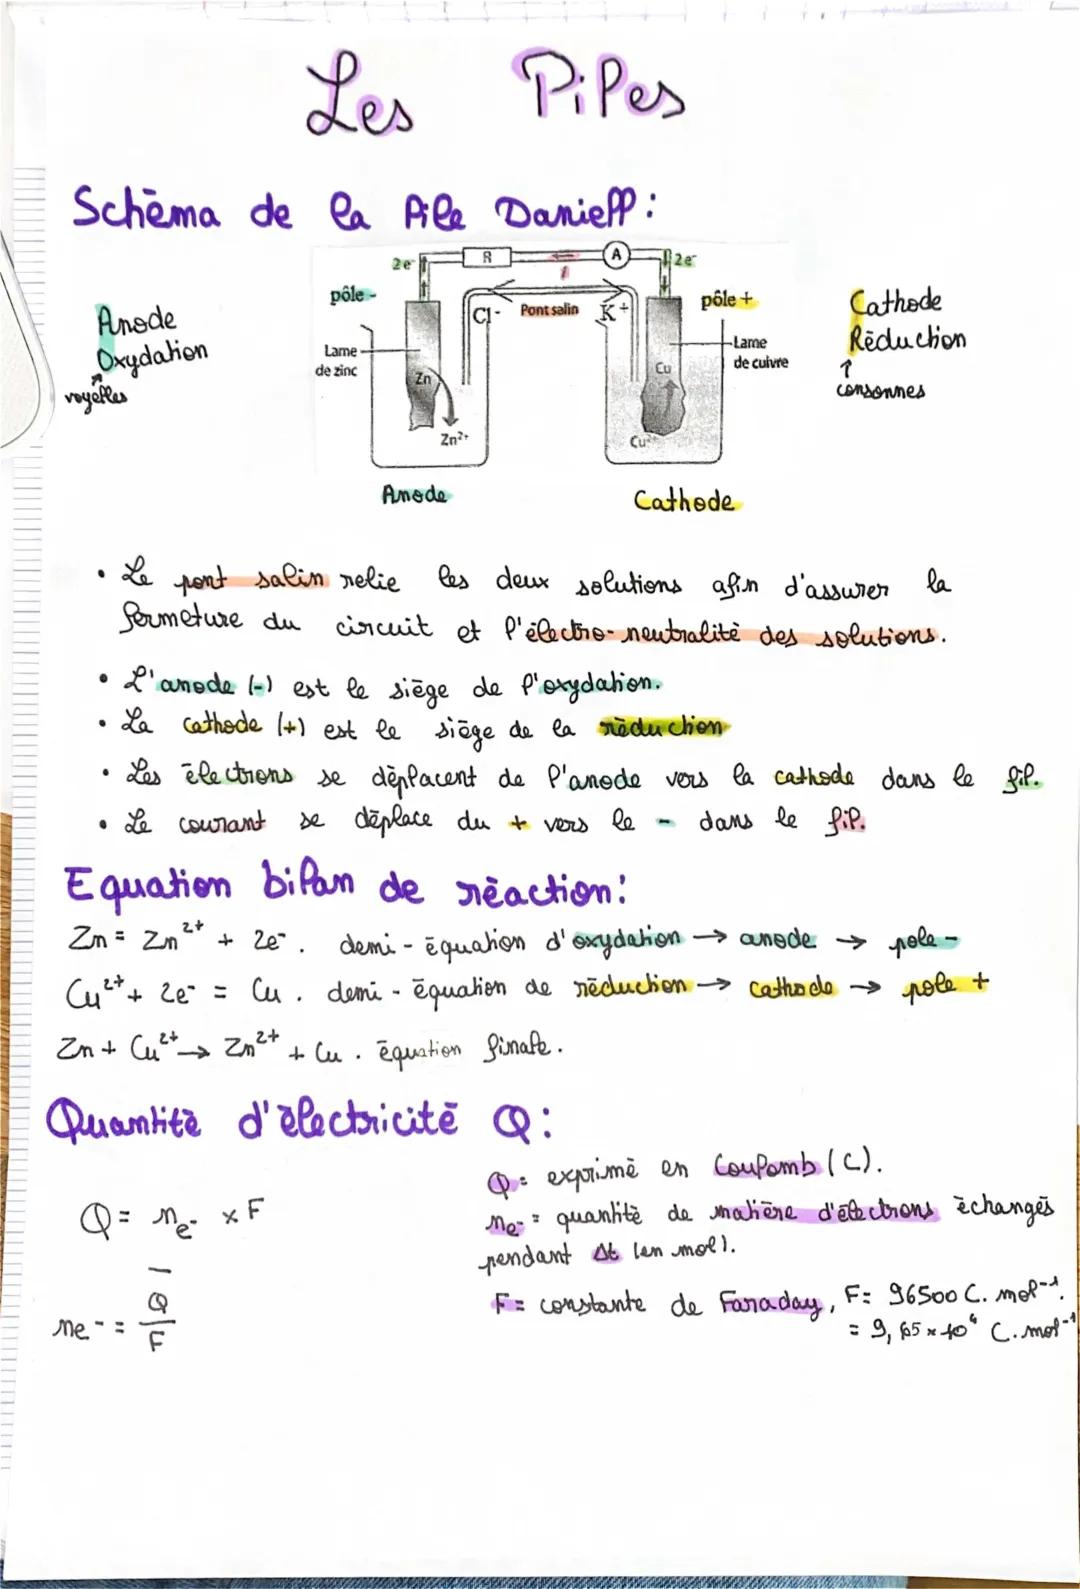 Les Piles
Schéma de la Pile Daniell :
2e⁻ R A 2e⁻
I
pôle - Cl- Pont salin K+ pôle +
Anode
Oxydation
voyelles
Cathode
Réduction
consonnes
Lame
de zinc
Lame
de cuivre
Zn Cu
Zn²⁺ Cu²⁺
Anode Cathode
• Le pont salin relie les deux solutions afin d'assurer la
fermeture du circuit et l'électro-neutralité des solutions.
• L'anode (-) est le siège de l'oxydation.
• La cathode (+) est le siège de la réduction
• Les électrons se déplacent de l'anode vers la cathode dans le fil.
• Le courant se déplace du + vers le - dans le fil.
Equation bilan de réaction :
Zn = Zn²⁺ + 2e⁻. demi-équation d'oxydation → anode → pole -
Cu²⁺ + 2e⁻ = Cu. demi-équation de réduction → cathode → pole +
Zn + Cu²⁺ → Zn²⁺ + Cu. équation finale.
Quantité d'électricité Q :
Q = exprimé en Coulomb (C).
Q = ne⁻ × F
ne⁻ = quantité de matière d'électrons échangés
pendant Δt (en mol).
ne⁻ = Q/F
F = constante de Faraday, F = 96500 C.mol⁻¹.
= 9,65 × 10⁴ C.mol⁻¹